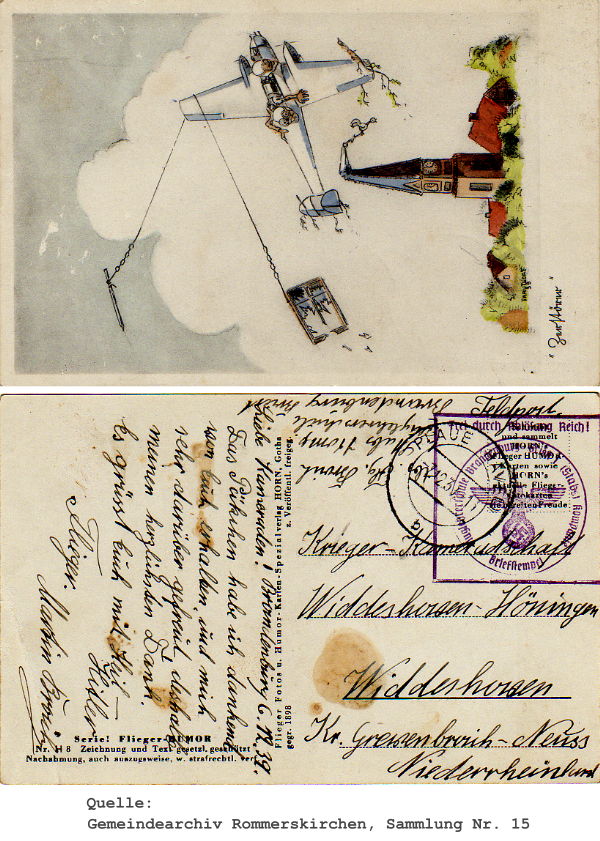 "Zerstörer"
Feldpost.
Frei durch Ablösung Reich!
und sammelt
HORN's
Flieger HUMOR-
Karten sowie
HORN's
aktuelle Flieger-
Fotokarten
Briefstempel
PLAUE
Brandenburg
Krieger-Kameradschaft
Widdeshoven-Höningen
Widdeshoven
Kr. Grevenbroich-Neuss
Niederrheinland
Flieger Fotos u. Humor-Karten-Spezialverlag HORN, Gotha
gegr. 1898 z. Veröffentl. freigeg.
Brandenburg 6.12.39.
Liebe Kameraden!
Das Päckchen habe ich dankend
von Euch erhalten und mich
sehr darüber gefreut
meinen herzlichsten Dank.
Es grüsst Euch mit Heil-
Hitler
Flieger.
Martin
Serie! Flieger-HUMOR
Nr. H 8 Zeichnung und Text gesetzl. geschützt
Nachahmung, auch auszugsweise, w. strafrechtl. verf.
Quelle:
Gemeindearchiv Rommerskirchen, Sammlung Nr. 15